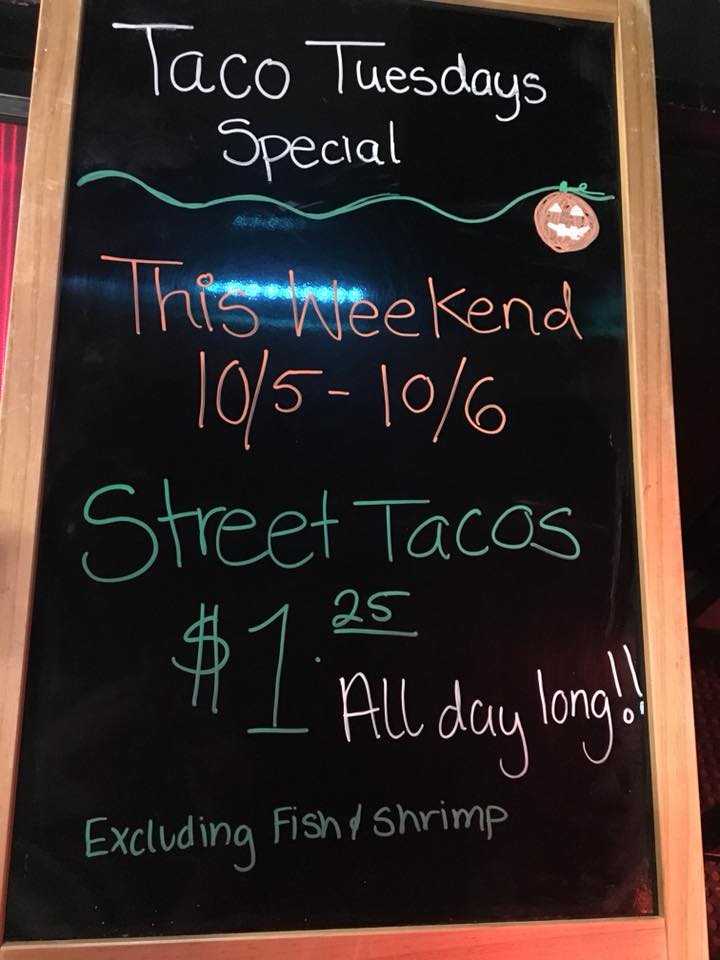 Taco Tuesdays
Special
This Weekend
10/5 - 10/6
Street Tacos
$1.25
All day long!!
Excluding Fish & Shrimp